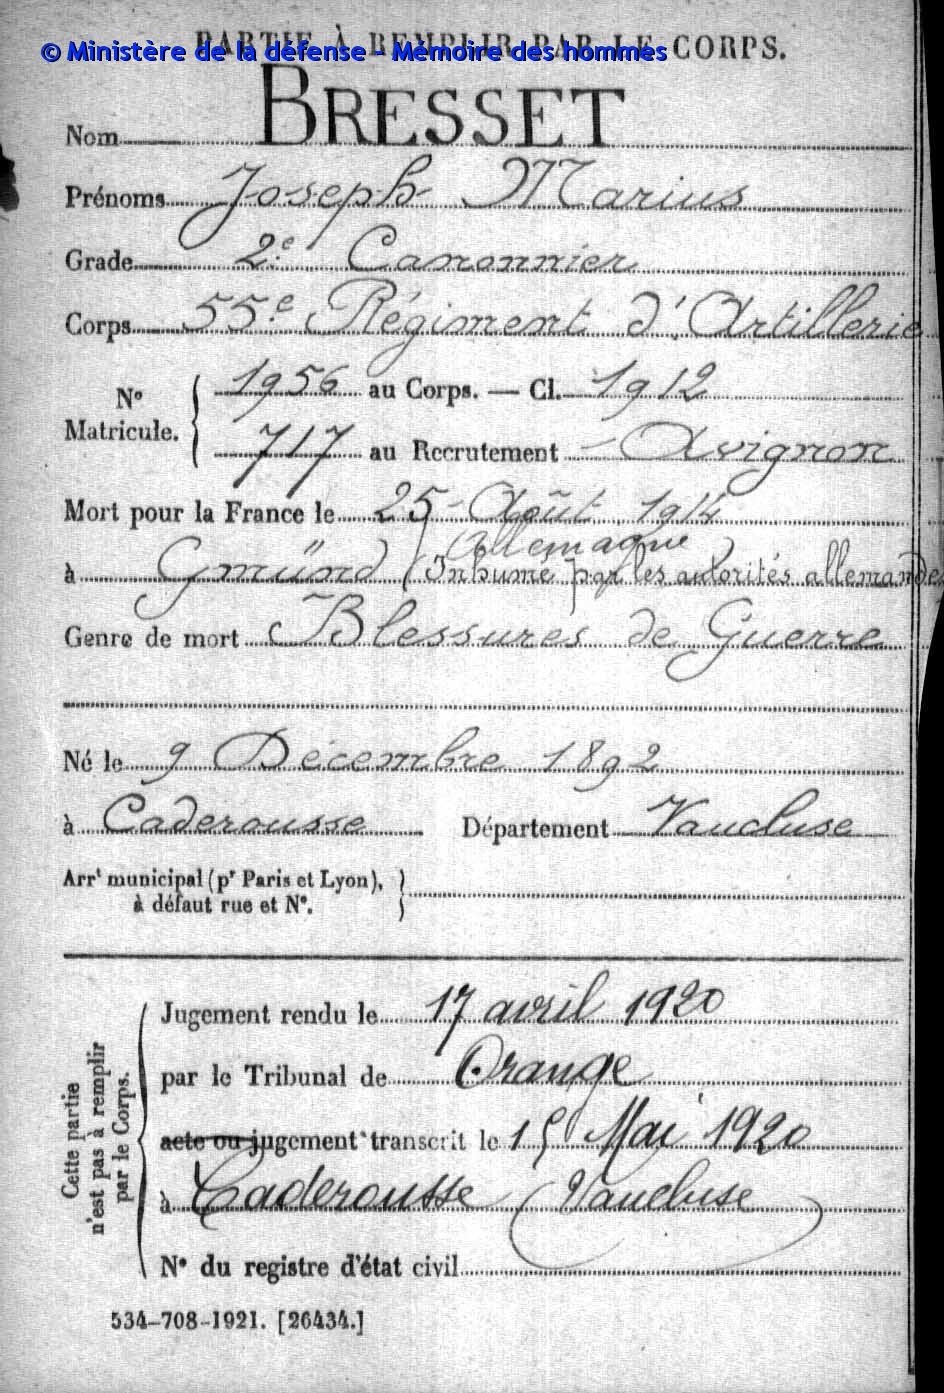 PARTIE À REMPLIR PAR LE CORPS.
© Ministère de la défense - Mémoire des hommes
Nom BRESSET
Prénoms Joseph Marius
Grade 2e Canonnier
Corps 55e Régiment d'Artillerie
No Matricule. { 1956 au Corps. — Cl. 1912
717 au Recrutement - Avignon
Mort pour la France le 25 - Août 1914
à Gmünd (Allemagne)
Inhumé par les autorités allemandes
Genre de mort Blessures de Guerre
Né le 9 Décembre 1892
à Caderousse Département Vaucluse
Arrt municipal (pr Paris et Lyon),
à défaut rue et No.
Cette partie n'est pas à remplir par le Corps.
Jugement rendu le 17 avril 1920
par le Tribunal de Orange
acte ou jugement transcrit le 15 Mai 1920
à Caderousse (Vaucluse)
No du registre d'état civil
534-708-1921. [26434.]